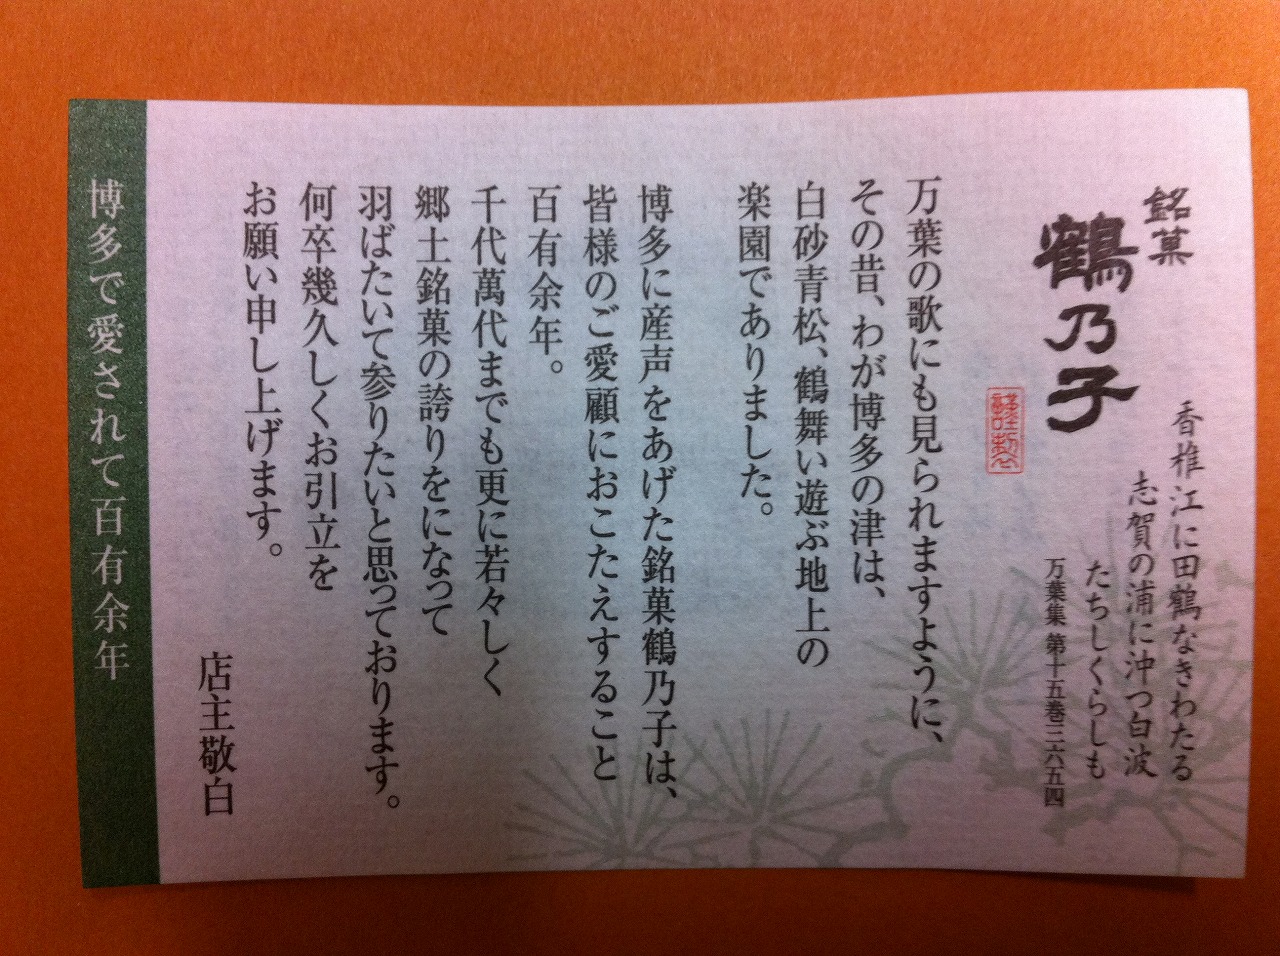 銘菓
鶴乃子
香椎江に田鶴なきわたる
志賀の浦に沖つ白波
たちしくらしも
万葉集 第十五巻三六五四
謹製
万葉の歌にも見られますように、
その昔、わが博多の津は、
白砂青松、鶴舞い遊ぶ地上の
楽園でありました。
博多に産声をあげた銘菓鶴乃子は、
皆様のご愛顧におこたえすること
百有余年。
千代萬代までも更に若々しく
郷土銘菓の誇りをになって
羽ばたいて参りたいと思っております。
何卒幾久しくお引立を
お願い申し上げます。
店主敬白
博多で愛されて百有余年